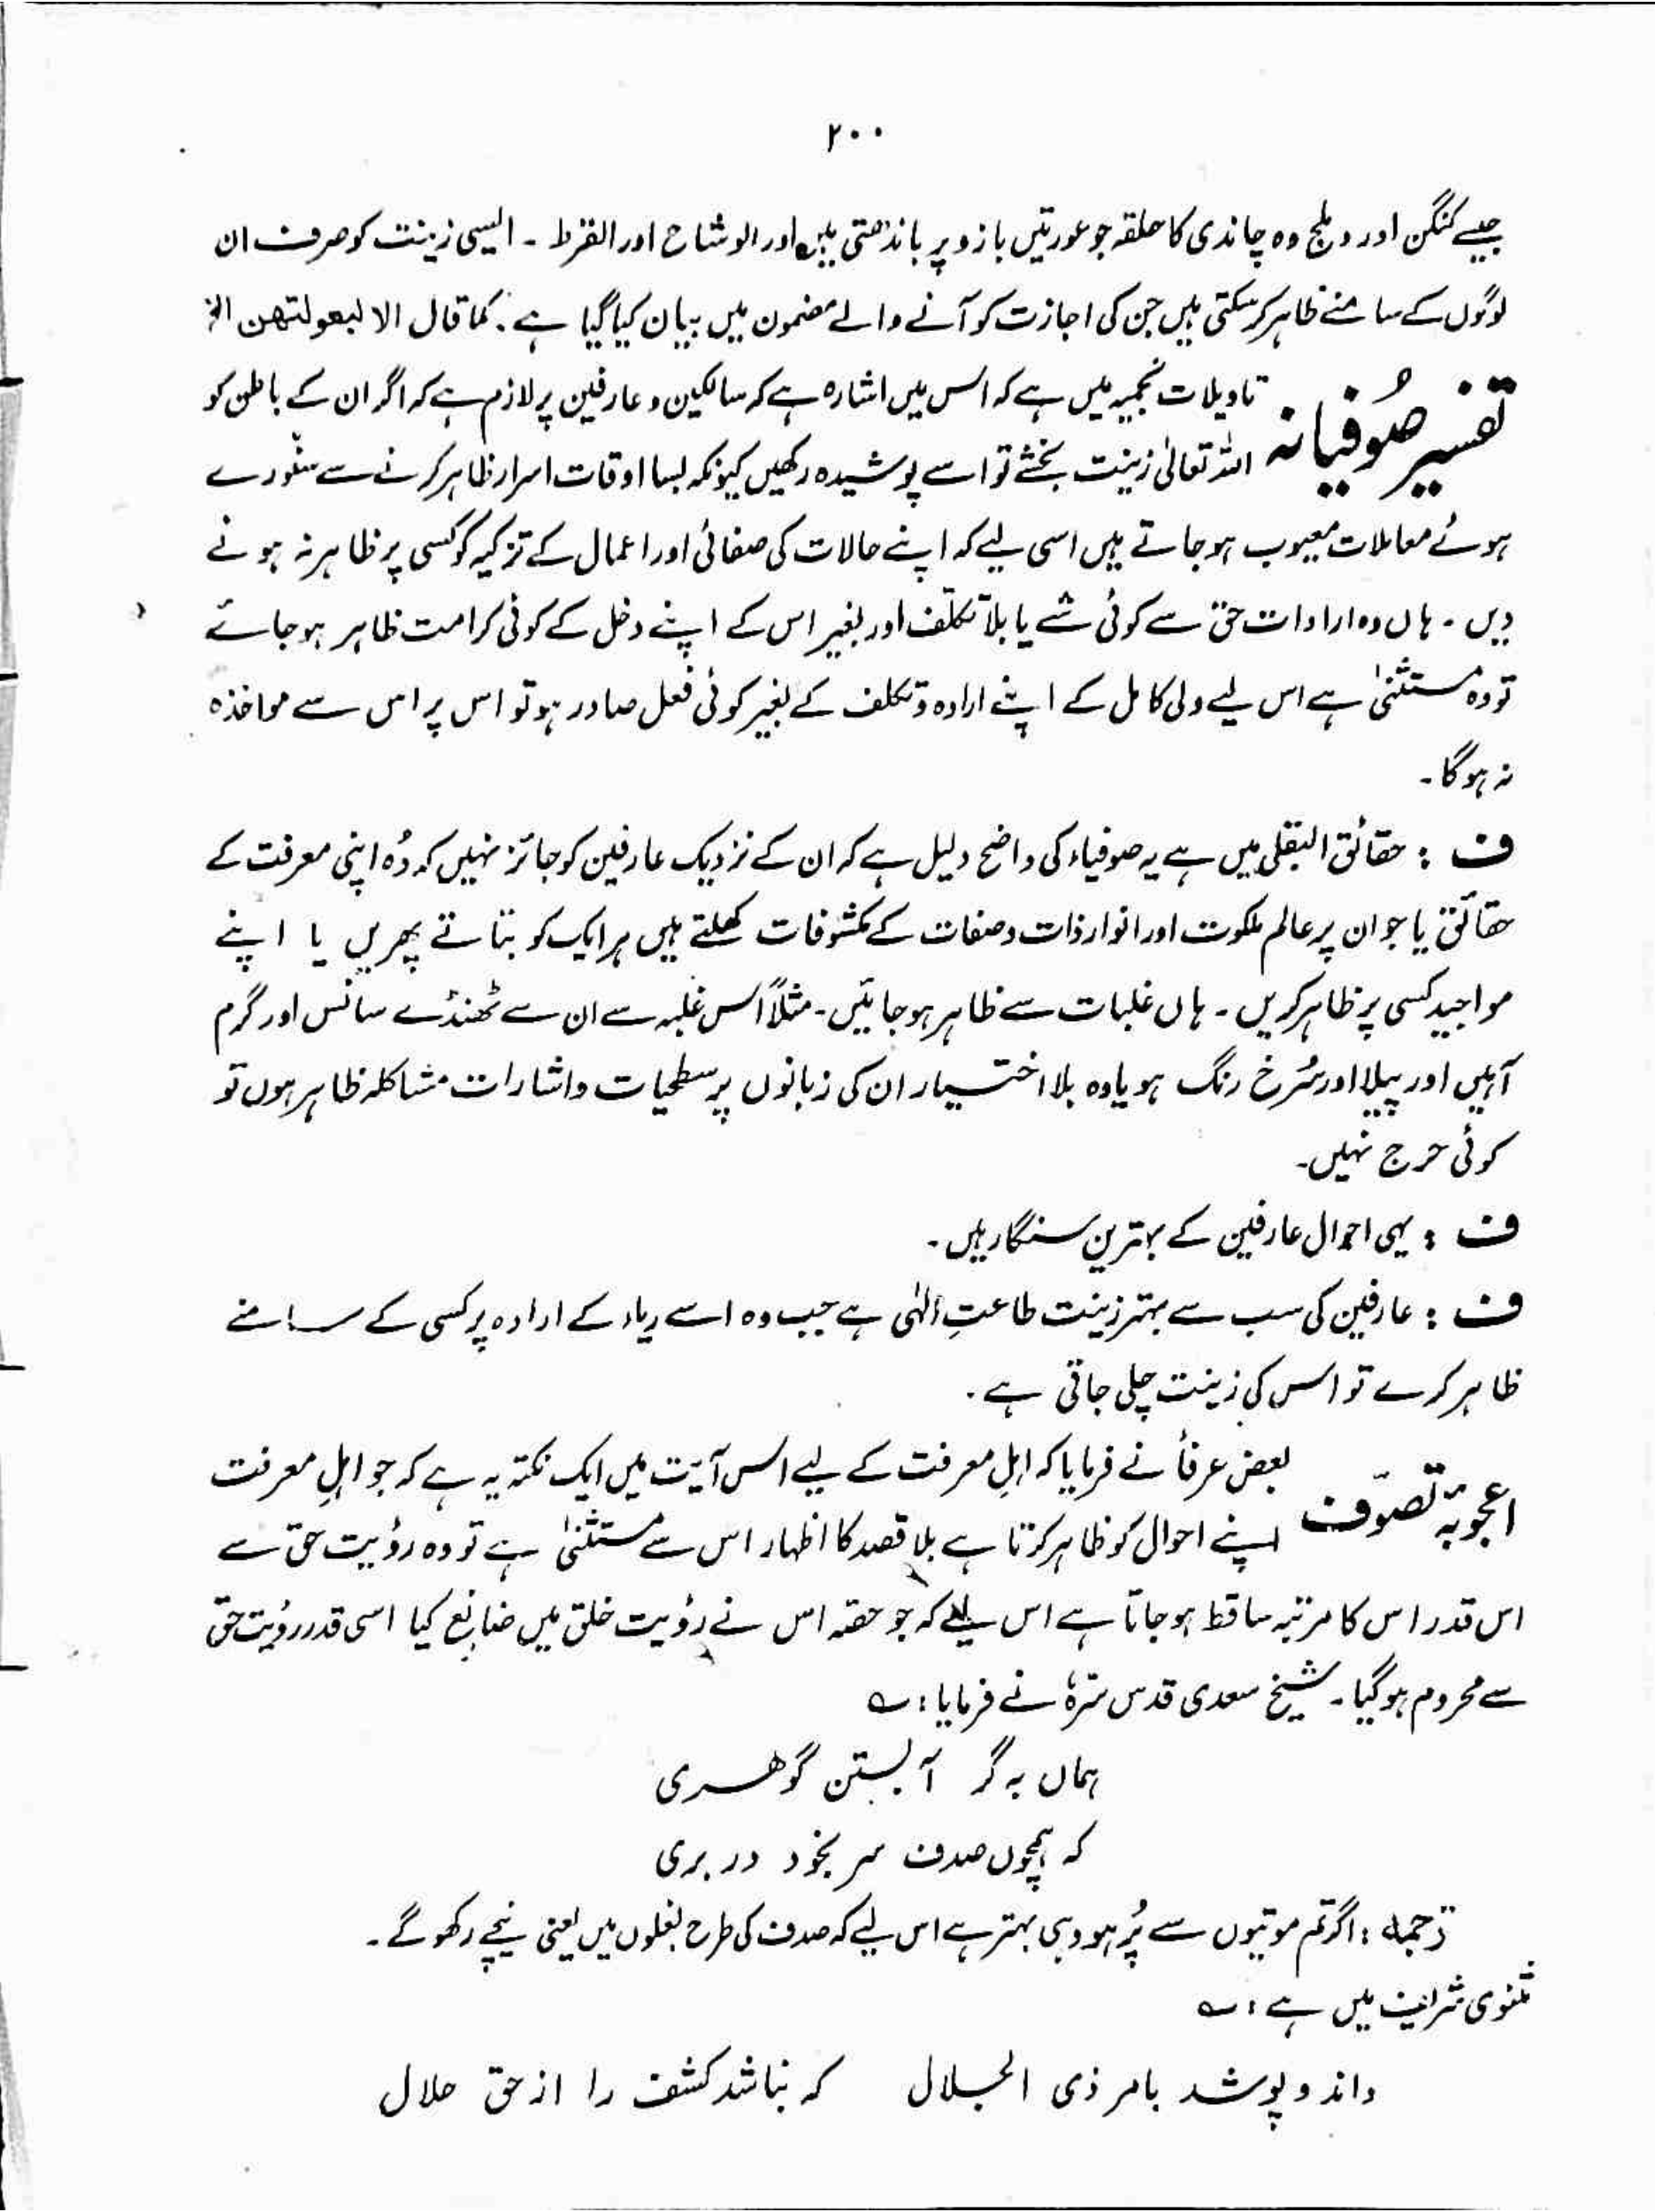 ۲۰۰
جیسے کنگن اور دملج وہ چاندی کا حلقہ جو عورتیں بازو پر باندھتی ہیں اور الوشاح اور القرط ۔ ایسی زینت کو صرف ان
لوگوں کے سامنے ظاہر کر سکتی ہیں جن کی اجازت کو آنے والے مضمون میں بیان کیا گیا ہے۔ کما قال الا لبعولتھن الخ
تفسیر صُوفیانہ
تاویلات نجمیہ میں ہے کہ اس میں اشارہ ہے کہ سالکین و عارفین پر لازم ہے کہ اگر ان کے باطن کو
اللہ تعالیٰ زینت بخشے تو اسے پوشیدہ رکھیں کیونکہ بسا اوقات اسرار ظاہر کرنے سے سنورے
ہوئے معاملات معیوب ہو جاتے ہیں اسی لیے کہ اپنے حالات کی صفائی اور اعمال کے تزکیہ کو کسی پر ظاہر نہ ہونے
دیں ۔ ہاں وہ ارادات حق سے کوئی شے یا بلا تکلّف اور بغیر اس کے اپنے دخل کے کوئی کرامت ظاہر ہو جائے
تو وہ مستثنیٰ ہے اس لیے ولی کامل کے اپنے ارادہ و تکلف کے بغیر کوئی فعل صادر ہو تو اس پر اس سے مواخذہ
نہ ہوگا ۔
ف : حقائق البقلی میں ہے یہ صوفیاء کی واضح دلیل ہے کہ ان کے نزدیک عارفین کو جائز نہیں کہ وُہ اپنی معرفت کے
حقائق یا جو ان پر عالم ملکوت اور انوار ذات و صفات کے مکشوفات کھلتے ہیں ہر ایک کو بتاتے پھریں یا اپنے
مواجید کسی پر ظاہر کریں ۔ ہاں غلبات سے ظاہر ہو جائیں ۔ مثلاً اس غلبہ سے ان سے ٹھنڈے سانس اور گرم
آہیں اور پیلا اور سُرخ رنگ ہو یا وہ بلا اختیار ان کی زبانوں پر سطحیات و اشارات مشاکلہ ظاہر ہوں تو
کوئی حرج نہیں۔
ف : یہی احوال عارفین کے بہترین سنگار ہیں ۔
ف : عارفین کی سب سے بہتر زینت طاعتِ الٰہی ہے جب وہ اسے ریاء کے ارادہ پر کسی کے سامنے
ظاہر کرے تو اس کی زینت چلی جاتی ہے ۔
اعجوبۂ تصوّف
بعض عرفأ نے فرمایا کہ اہلِ معرفت کے لیے اس آیت میں ایک نکتہ یہ ہے کہ جو اہلِ معرفت
اپنے احوال کو ظاہر کرتا ہے بلا قصد کا اظہار اس سے مستثنیٰ ہے تو وہ رؤیت حق سے
اس قدر اس کا مرتبہ ساقط ہو جاتا ہے اس لیے کہ جو حصّہ اس نے رؤیت خلق میں ضائع کیا اسی قدر رؤیت حق
سے محروم ہوگیا ۔ شیخ سعدی قدس سرّہٗ نے فرمایا : ؎
ہماں بہ گر آبستن گوھری
کہ ہمچوں صدف سر بخود در بری
ترجمہ : اگر تم موتیوں سے پُر ہو وہی بہتر ہے اس لیے کہ صدف کی طرح بغلوں میں یعنی نیچے رکھو گے ۔
مثنوی شریف میں ہے : ؎
داند و پوشد بامر ذی الجلال کہ نباشد کشف را از حق حلال